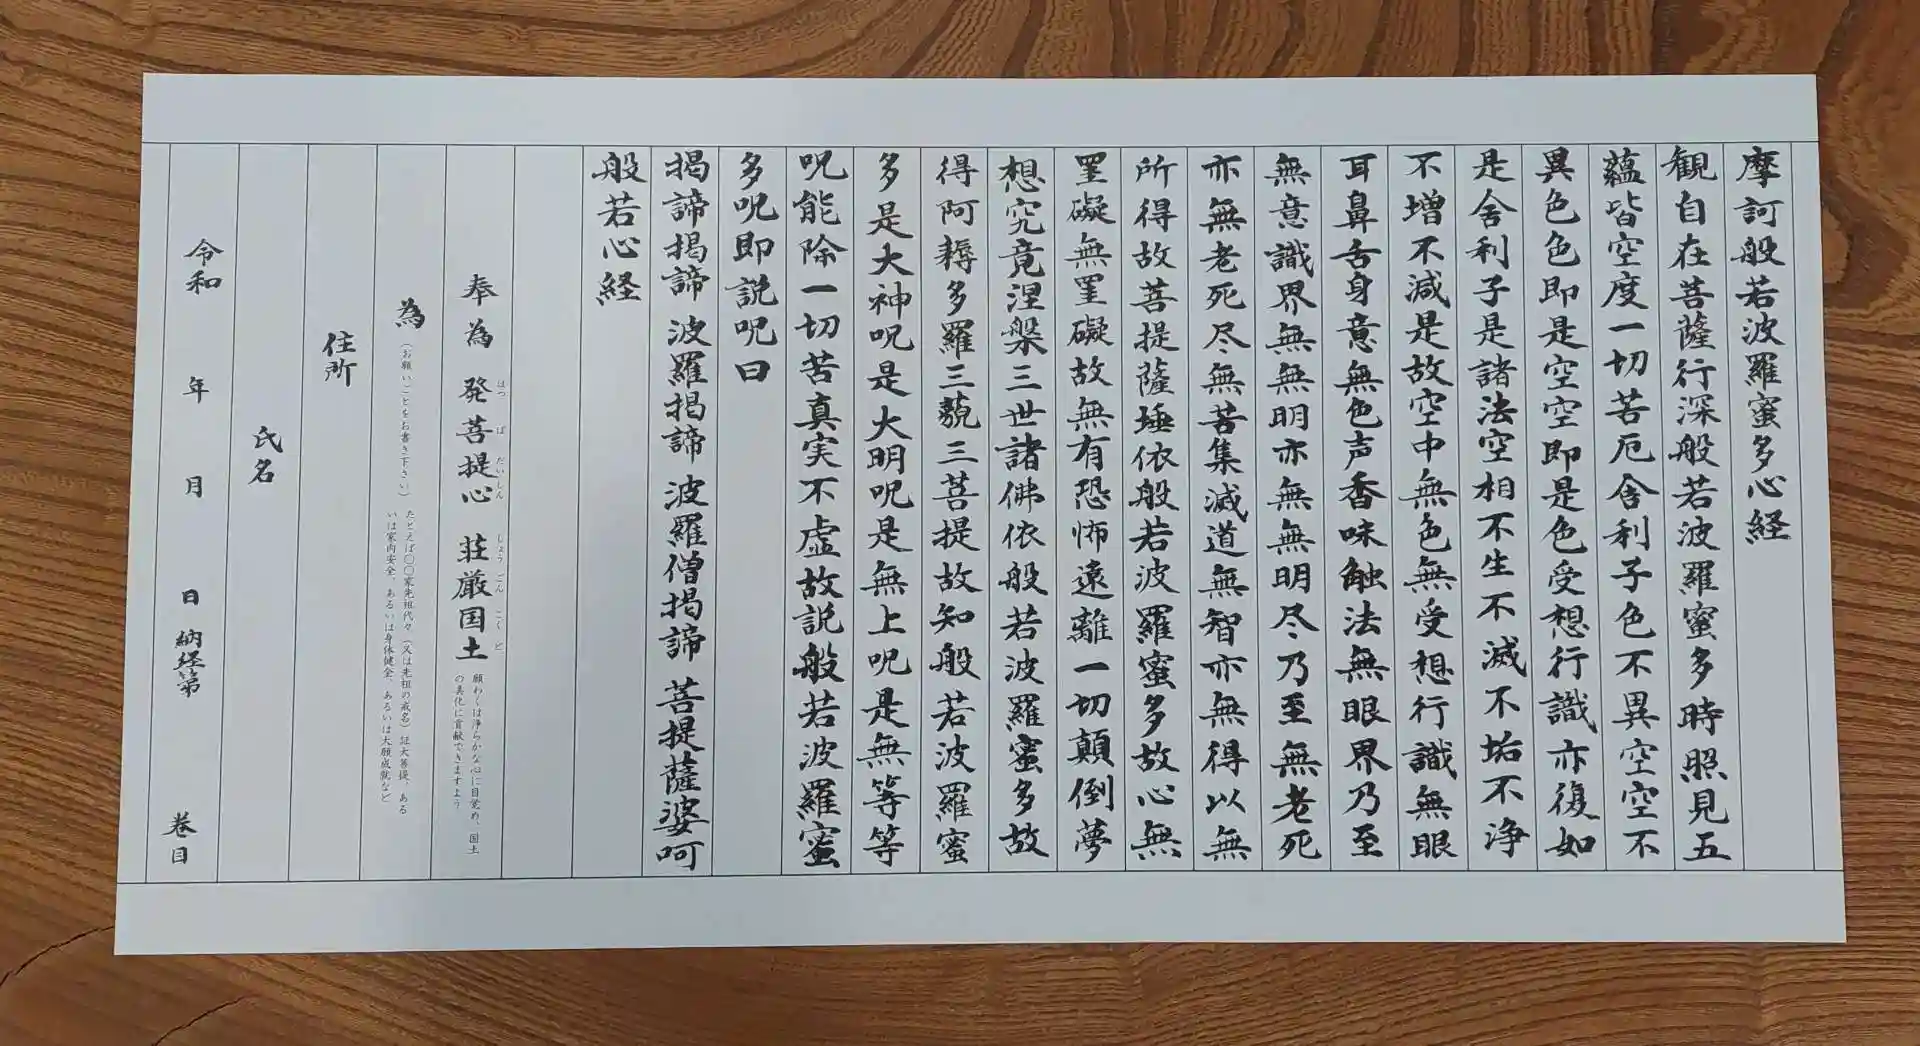 摩訶般若波羅蜜多心経
観自在菩薩行深般若波羅蜜多時照見五
蘊皆空度一切苦厄舎利子色不異空空不
異色色即是空空即是色受想行識亦復如
是舎利子是諸法空相不生不滅不垢不浄
不増不減是故空中無色無受想行識無眼
耳鼻舌身意無色声香味触法無眼界乃至
無意識界無無明亦無無明尽乃至無老死
亦無老死尽無苦集滅道無智亦無得以無
所得故菩提薩埵依般若波羅蜜多故心無
罣礙無罣礙故無有恐怖遠離一切顛倒夢
想究竟涅槃三世諸佛依般若波羅蜜多故
得阿耨多羅三藐三菩提故知般若波羅蜜
多是大神呪是大明呪是無上呪是無等等
呪能除一切苦真実不虚故説般若波羅蜜
多呪即説呪曰
掲諦掲諦 波羅掲諦 波羅僧掲諦 菩提薩婆呵
般若心経
はつ ぼ だいしん しょうごん こくど
奉為 発菩提心 荘厳国土
願わくは浄らかな心に目覚め、国土
の美化に貢献できますよう
為（お願いごとをお書き下さい）
たとえば〇〇家先祖代々（又は先祖の戒名）証大菩提、ある
いは家内安全、あるいは身体健全、あるいは大願成就など
住所
氏名
令和 年 月 日 納経第 巻目